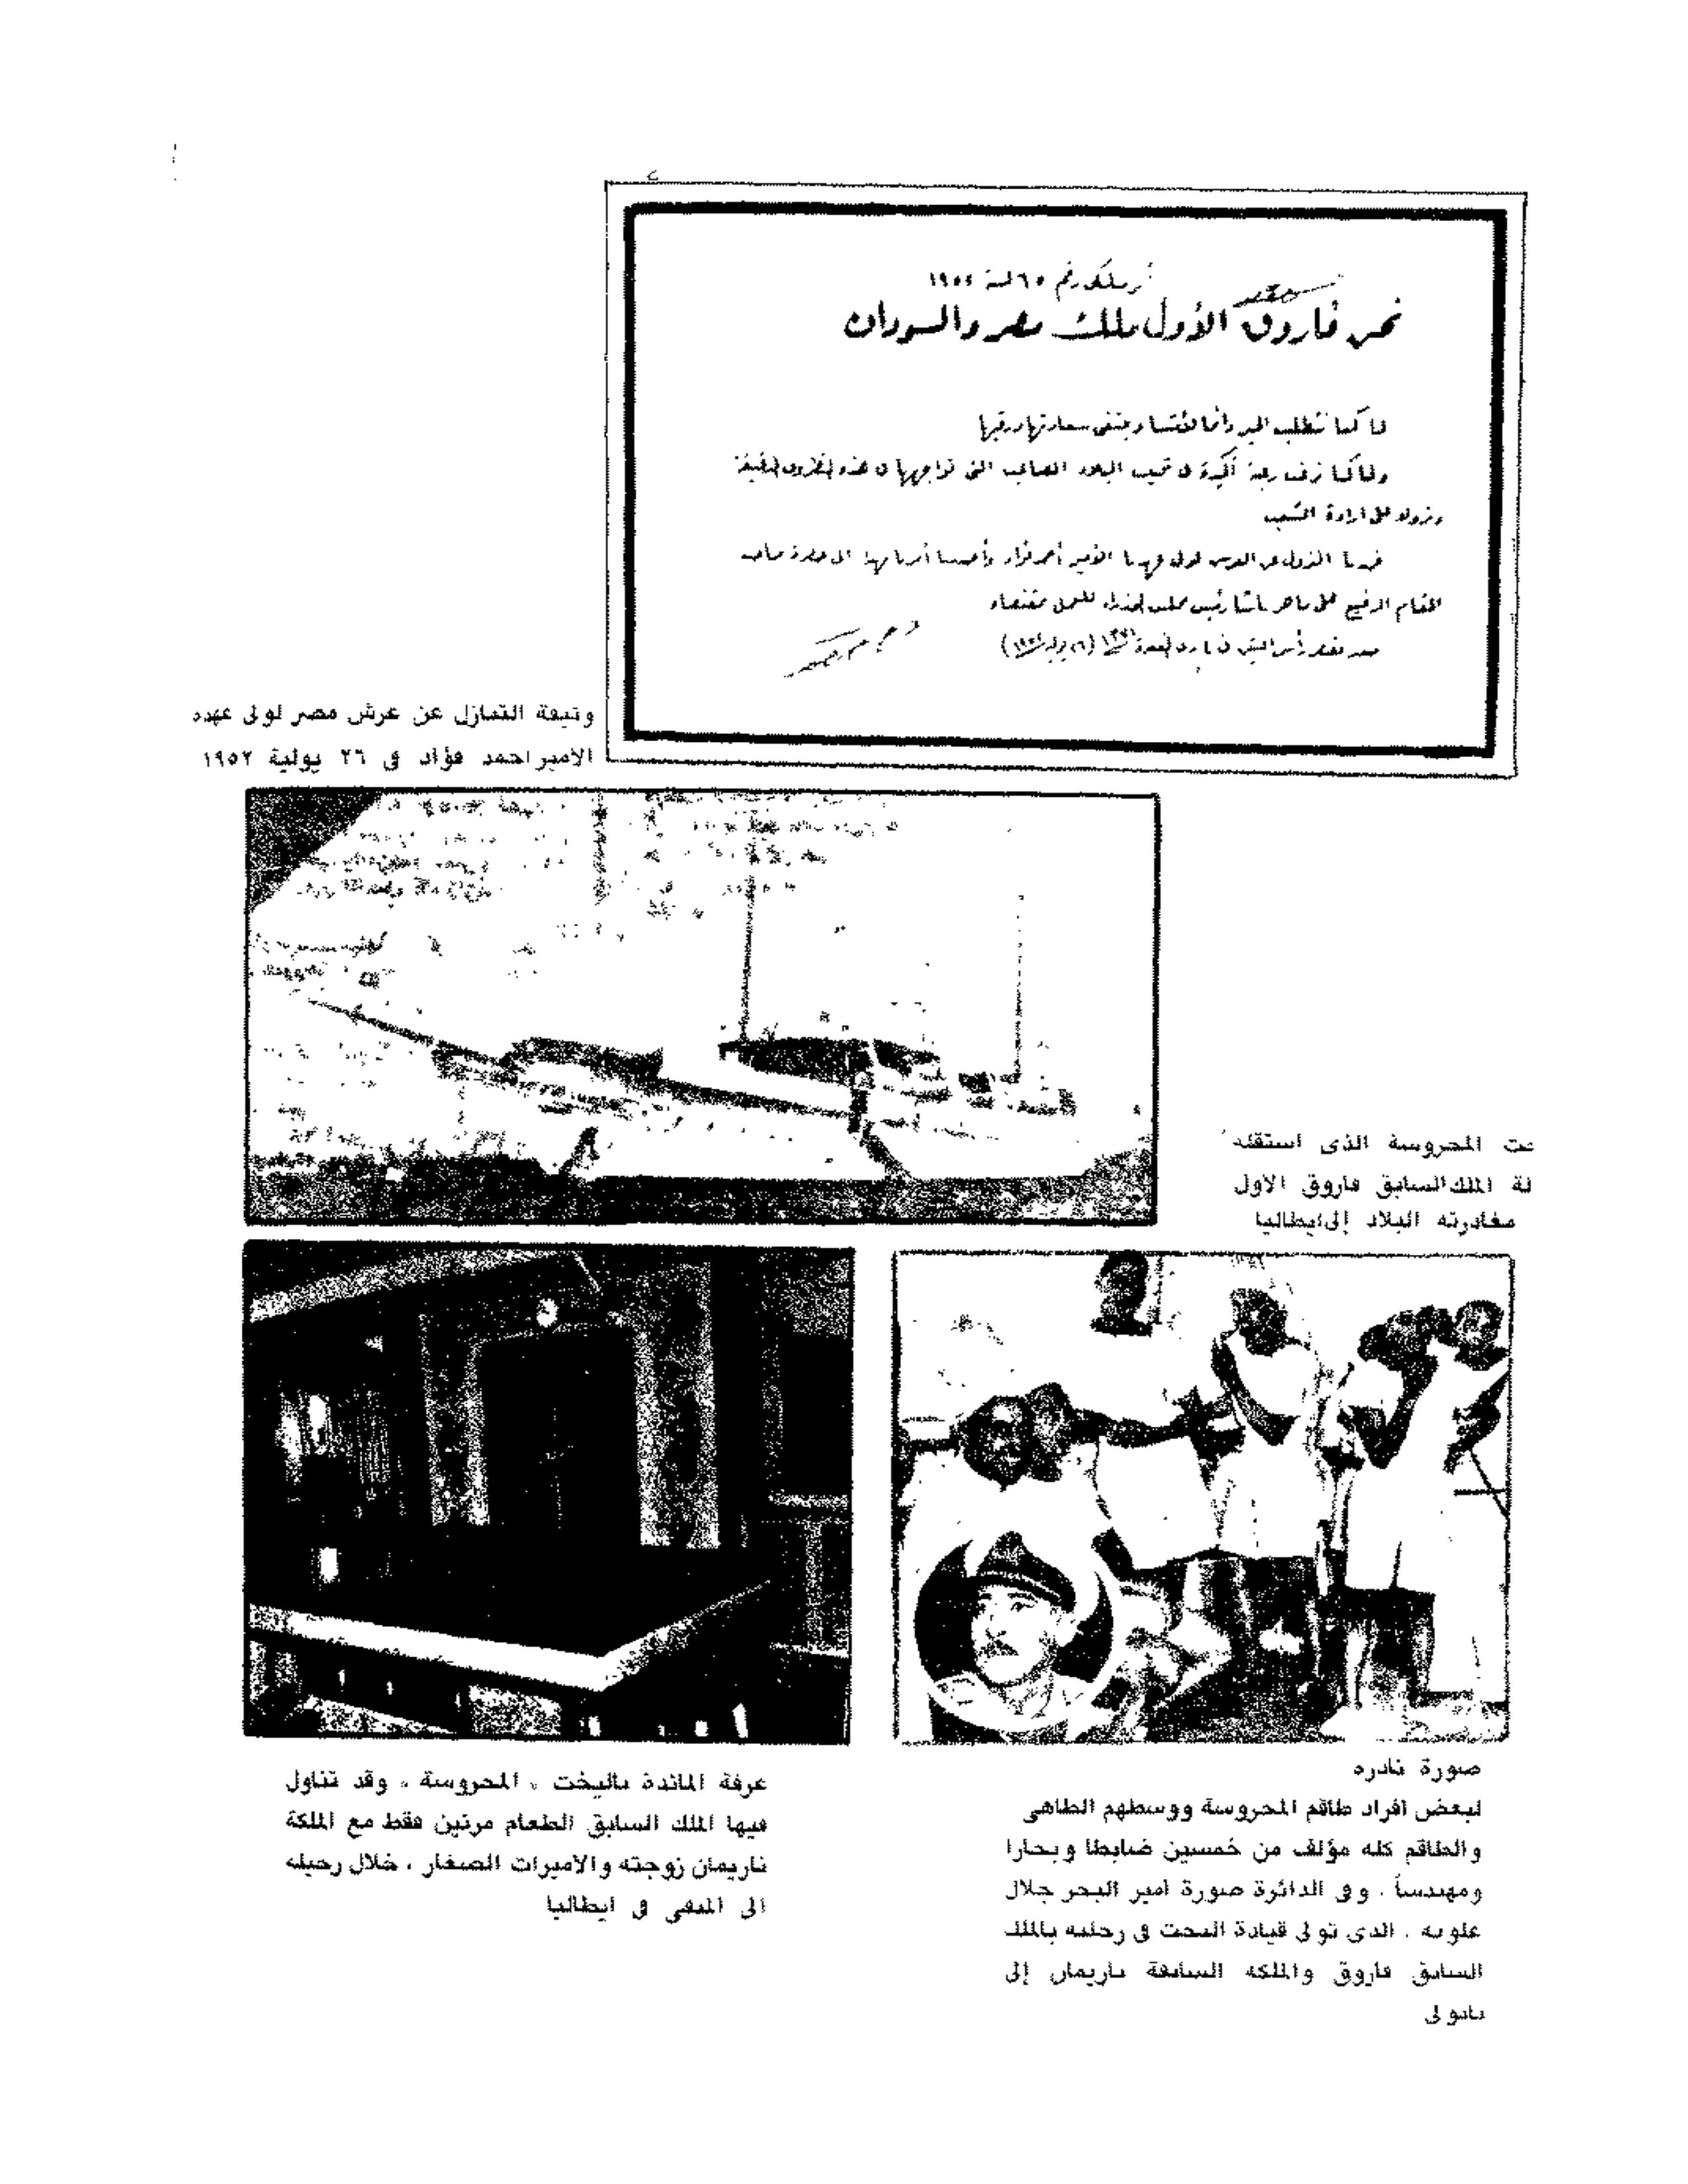 أمر ملكى رقم ٦٥ لسنة ١٩٥٢
نحن فاروق الأول ملك مصر والسودان
لما كنا نتطلب الخير دائما لأمتنا ونبتغى سعادتها ورقيها
ولما كنا نرغب رغبة أكيدة فى تجنيب البلاد المصاعب التى تواجهها فى هذه الظروف الدقيقة
ونزولا على إرادة الشعب
قررنا النزول عن العرش لولى عهدنا الأمير أحمد فؤاد وأصدرنا أمرنا بهذا الى حضرة صاحب
المقام الرفيع على ماهر باشا رئيس مجلس الوزراء للعمل بمقتضاه
صدر بقصر رأس التين فى
وثيقة التنازل عن عرش مصر لولى عهده
الامير احمد فؤاد فى ٢٦ يولية ١٩٥٢
خت المحروسة الذى استقله
لة الملك السابق فاروق الاول
مغادرته البلاد إلى ايطاليا
غرفة المائدة باليخت « المحروسة » وقد تناول
فيها الملك السابق الطعام مرتين فقط مع الملكة
ناريمان زوجته والاميرات الصغار ، خلال رحيله
الى المنفى فى ايطاليا
صورة نادره
لبعض افراد طاقم المحروسة ووسطهم الطاهى
والطاقم كله مؤلف من خمسين ضابطا وبحارا
ومهندسأ . وفى الدائرة صورة امير البحر جلال
علوبه . الذى تولى قيادة اليخت فى رحلته بالملك
السابق فاروق والملكه السابقة ناريمان إلى
نابولى